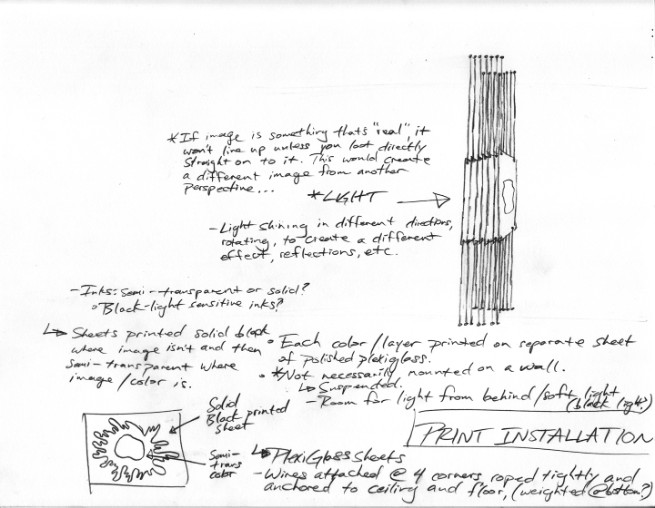 *If image is something thats "real", it
won't line up unless you look directly
straight on to it. This would create
a different image from another
perspective...
*LIGHT
- Light shining in different directions,
rotating, to create a different
effect, reflections, etc.
- Inks: semi-transparent or solid?
• Black-light sensitive inks?
↳ Sheets printed solid black
where image isn't and then
semi-transparent where
image/color is.
• Each color/layer printed on separate sheet
of polished plexiglass.
• *Not necessarily mounted on a wall.
↳ Suspended.
- Room for light from behind/soft light
(black light?)
PRINT INSTALLATION
Solid
Black printed
sheet
Semi-
trans
color
↳ Plexiglass sheets
- Wires attached @ 4 corners roped tightly and
anchored to ceiling and floor, (weighted @ bottom?)